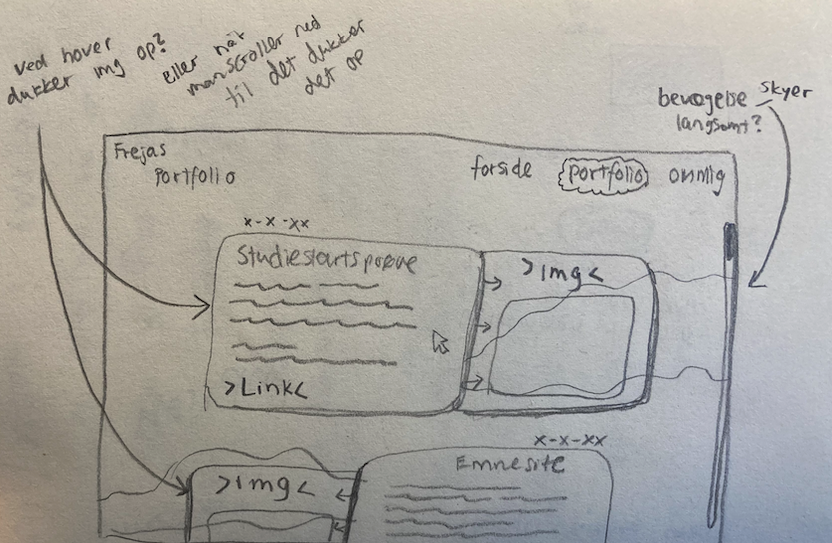 ved hover
dukker img op?
eller når
man scroller ned
til det dukker
det op
bevægelse skyer
langsomt?
Frejas
Portfolio
forside portfolio om mig
x-x-xx
Studiestartsprøve
>img<
>Link<
x-x-xx
Emnesite
>img<